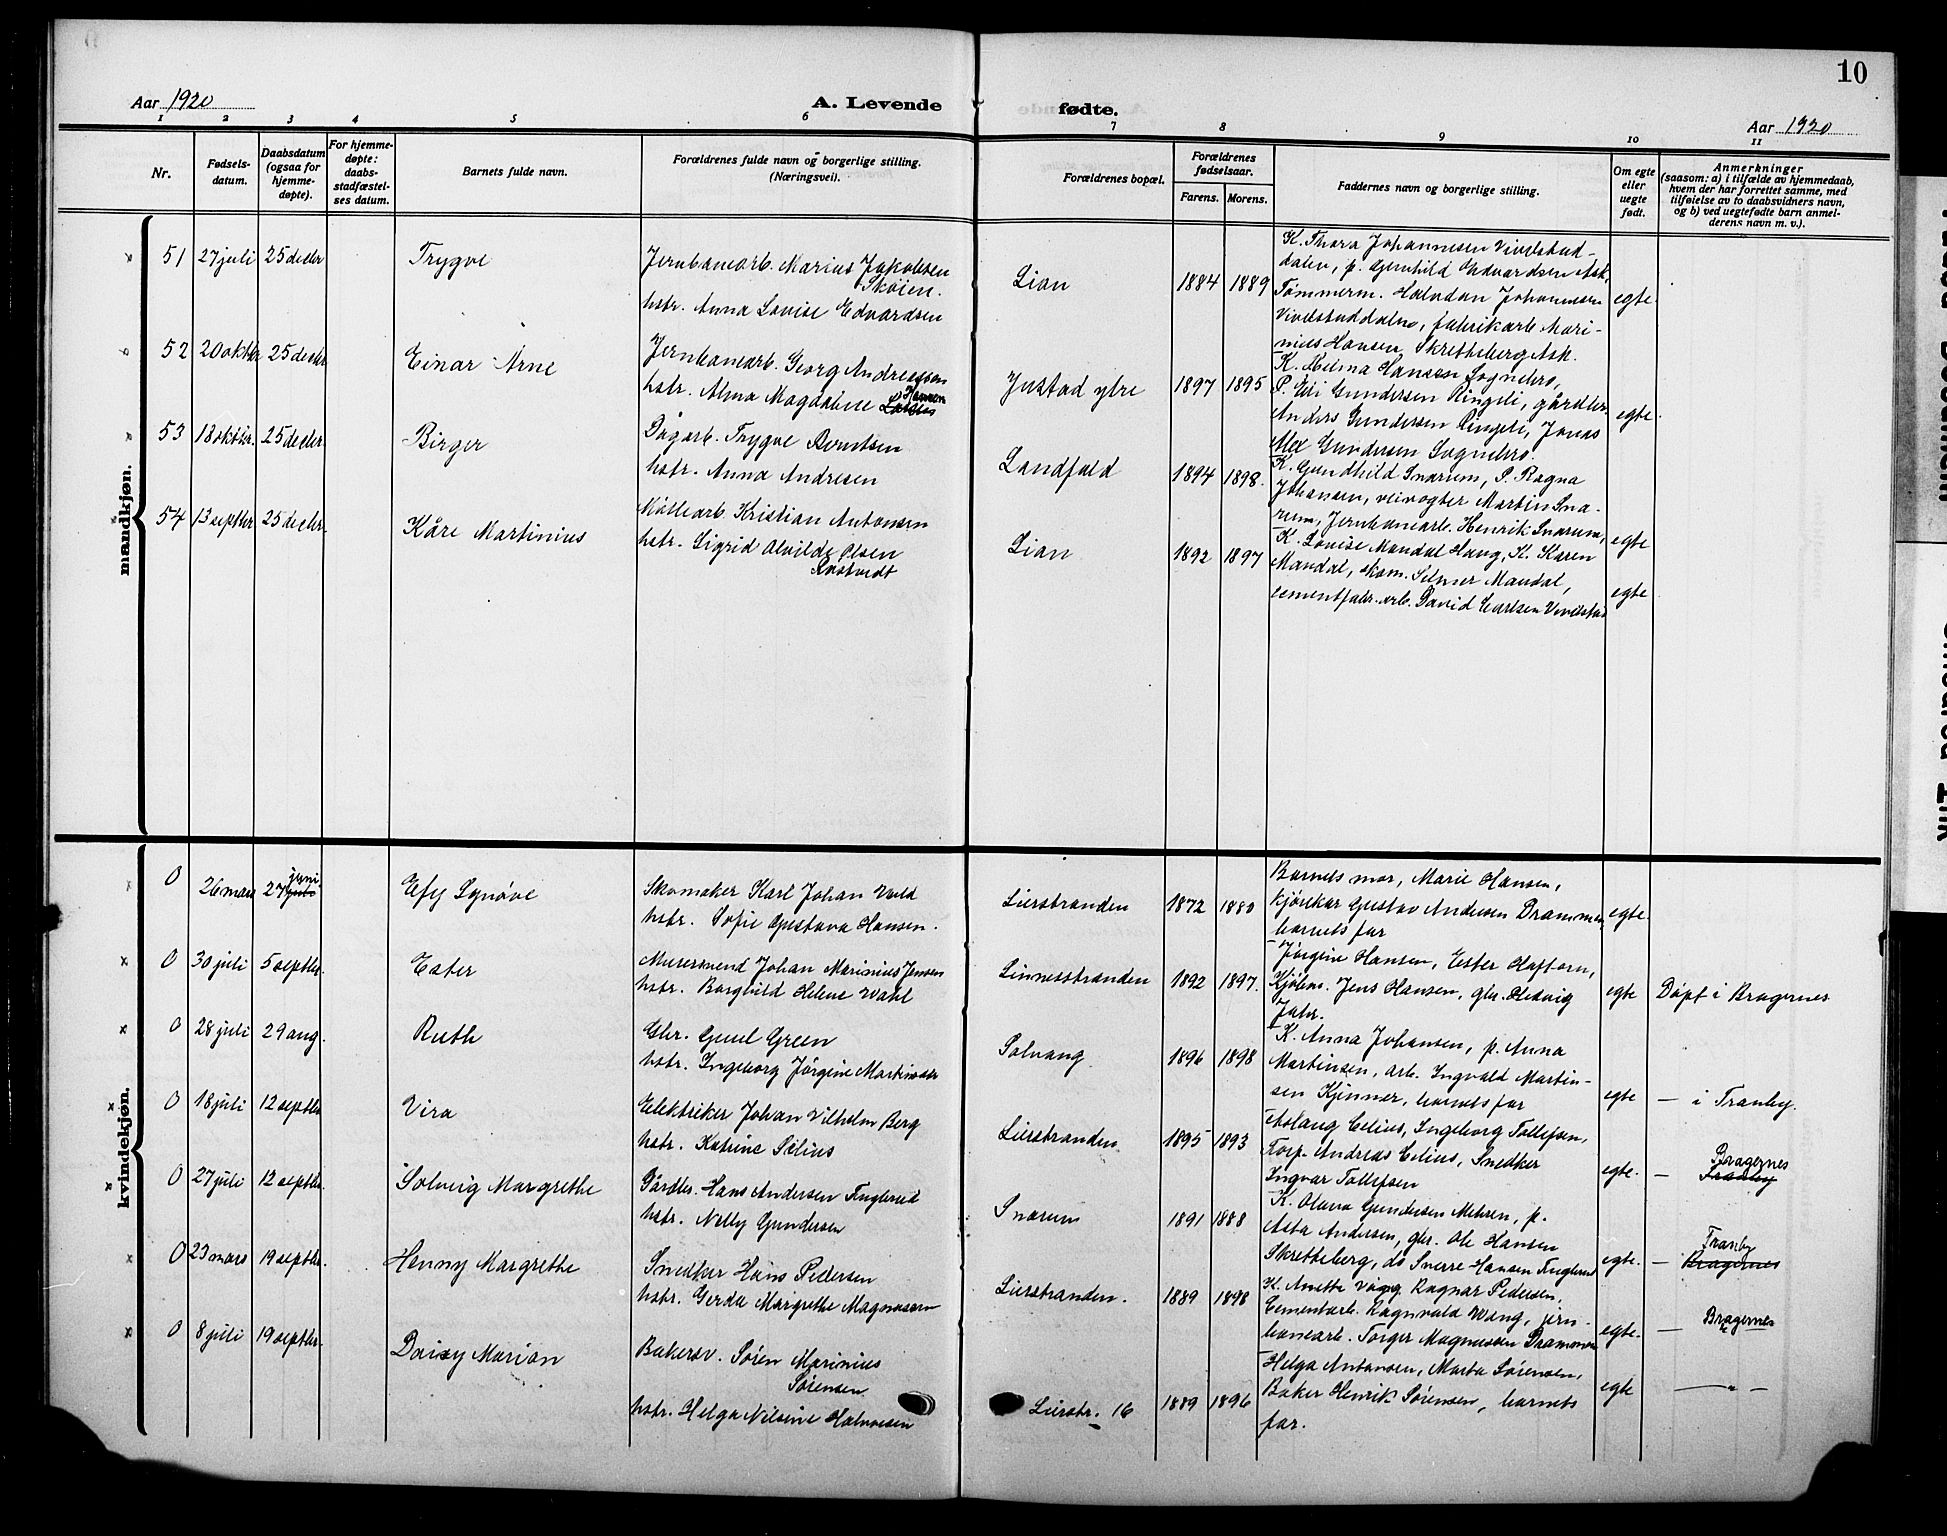 10
Aar 1920
A. Levende fødte.
Aar 1920
1 2 3 4 5 6 7 8 9 10 11
Nr.
Fødsels-
datum.
Daabsdatum
(ogsaa for
hjemme-
døpte).
For hjemme-
døpte:
daabs-
stadfæstel-
ses datum.
Barnets fulde navn.
Forældrenes fulde navn og borgerlige stilling.
(Næringsvei).
Forældrenes bopæl.
Forældrenes
fødselsaar.
Farens. Morens.
Faddernes navn og borgerlige stilling.
Om egte
eller
uegte
født.
Anmerkninger
(saasom: a) i tilfælde av hjemmedaab,
hvem der har forrettet samme, med
tilføielse av to daabsvidners navn,
og b) ved uegtefødte barn anmel-
derens navn m. v.).
mandkjøn.
51 27 juli 25 decbr Trygve
Jernbanearb. Marius Jakobsen
Skøien.
hstr. Anna Lovise Edvardsen
Lian 1884 1889
K. Thora Johannesen Vivelstad-
dalen, p. Gunhild Edvardsen Ask,
Tømmerm. Halvdan Johannesen
Vivelstaddalen, fabrikarb. Mari-
nius Hansen, Skretteberg Ask.
egte.
52 20 oktbr 25 decbr. Einar Arne
Jernbanearb. Georg Andreassen
hstr. Alma Magdalene Hansen
Justad ytre 1897 1895
K. Helma Hansen Sognebro,
P. Elli Gundersen Ringeli, gårdbr.
Anders Gundersen Ringeli, Jonas
Alex Gundersen Sognebro.
egte.
53 18 oktbr. 25 decbr. Birger
Dagarb. Trygve Berntsen
hstr. Anna Andresen
Landfald 1894 1898.
K. Gundhild Snarum, P. Ragna
Johansen, veivogter Martin Sna-
rum, Jernbanearb. Henrik Snarum,
egte
54 13 septbr. 25 decbr. Kåre Martinius
Møllearb. Kristian Antonsen
hstr. Sigrid Alvilde Olsen
Lian 1892 1897
K. Lovise Mandal Haug, K. Karen
Mandal, skom. Selmer Mandal,
cementfabr.arb. David Carlsen Vivelstad
egte
kvindekjøn.
0 26 mars 27 juni Efy Synøve
Skomaker Karl Johan Vold
hstr. Sofie Gustava Hansen.
Lierstranden 1872 1880
Barnets mor, Marie Hansen,
kjørekar Gustav Andersen Drammen,
barnets far
egte.
0 30 juli 5 septbr. Ester
Murersvend Johan Marinius Jensen
hstr. Borghild Helene Wahl
Linnesstranden 1892 1897.
Jørgine Hansen, Ester Haftorn,
Kjøbm. Jens Hansen, gbr. Hedvig
egte Døpt i Bragernes
0 28 juli 29 aug. Ruth
Gbr. Gunel Green
hstr. Ingeborg Jørgine Martinsen
Solvang 1896 1898
K. Anna Johansen, p. Anna
Martinsen, arb. Ingvald Martin-
sen Kjenner, barnets far
egte — i Tranby.
0 18 juli 12 septbr Vira
Elektriker Johan Vilhelm Berg
hstr. Katrine Selius
Lierstranden 1895 1893
Aslaug Celius, Ingeborg Tollefsen,
Korp. Andreas Celius, Snedker
Ingvar Tollefsen
egte. — Bragernes
Tranby
0 27 juli 12 septbr. Solveig Margrethe
Gårdbr. Hans Andersen Fuglerud
hstr. Nelly Gundersen
Snarum 1891 1888
K. Olava Gundersen Mehren, p.
Asta Andersen, gbr. Ole Hansen
Skretteberg, do Sverre Hansen Fuglerud
egte. — Tranby
Bragernes
0 23 mars 19 septbr. Henny Margrethe
Snedker Hans Pedersen
hstr. Gerda Margrethe Magnussen
Lierstranden. 1889 1898
K. Anette Våg, Ragnar Pedersen,
Cementarb. Ragnvald Wang, jern-
banearb. Torger Magnussen Drammen
egte. — Bragernes
0 8 juli 19 septbr. Daisy Marian
Bakersv. Søren Marinius
Sørensen
hstr. Helga Nilsine Halvorsen
Lierstr. 16 1889 1896
Helga Antonsen, Marta Sørensen,
Baker Henrik Sørensen, barnets
far.
egte — " —